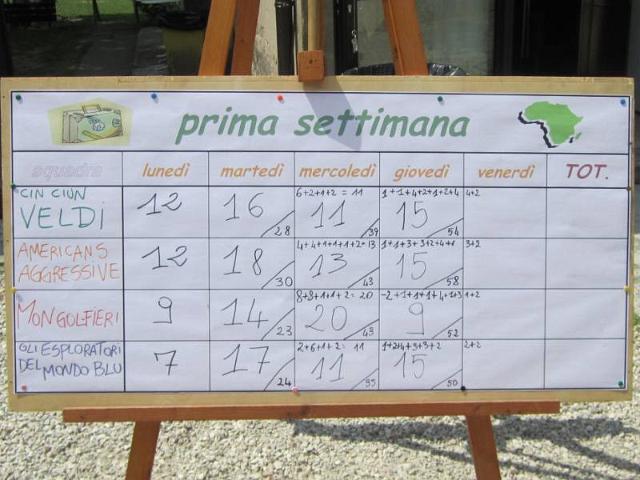 prima settimana
squadra lunedì martedì mercoledì giovedì venerdì TOT.
CIN CIUN VELDI 12 16 28 6+2+1+2 = 11 11 39 1+1+4+2+1+2+4 15 54 4+2
AMERICANS AGGRESSIVE 12 18 30 4+4+1+1+1+2=13 13 43 1+1+3+3+2+4+1 15 58 3+2
MONGOLFIERI 9 14 23 8+8+1+1+2=20 20 43 -2+1+1+1+4+1+3 9 52 1+2
GLI ESPLORATORI DEL MONDO BLU 7 17 24 2+6+1+2= 11 11 35 1+2+4+3+3+2 15 50 2+2